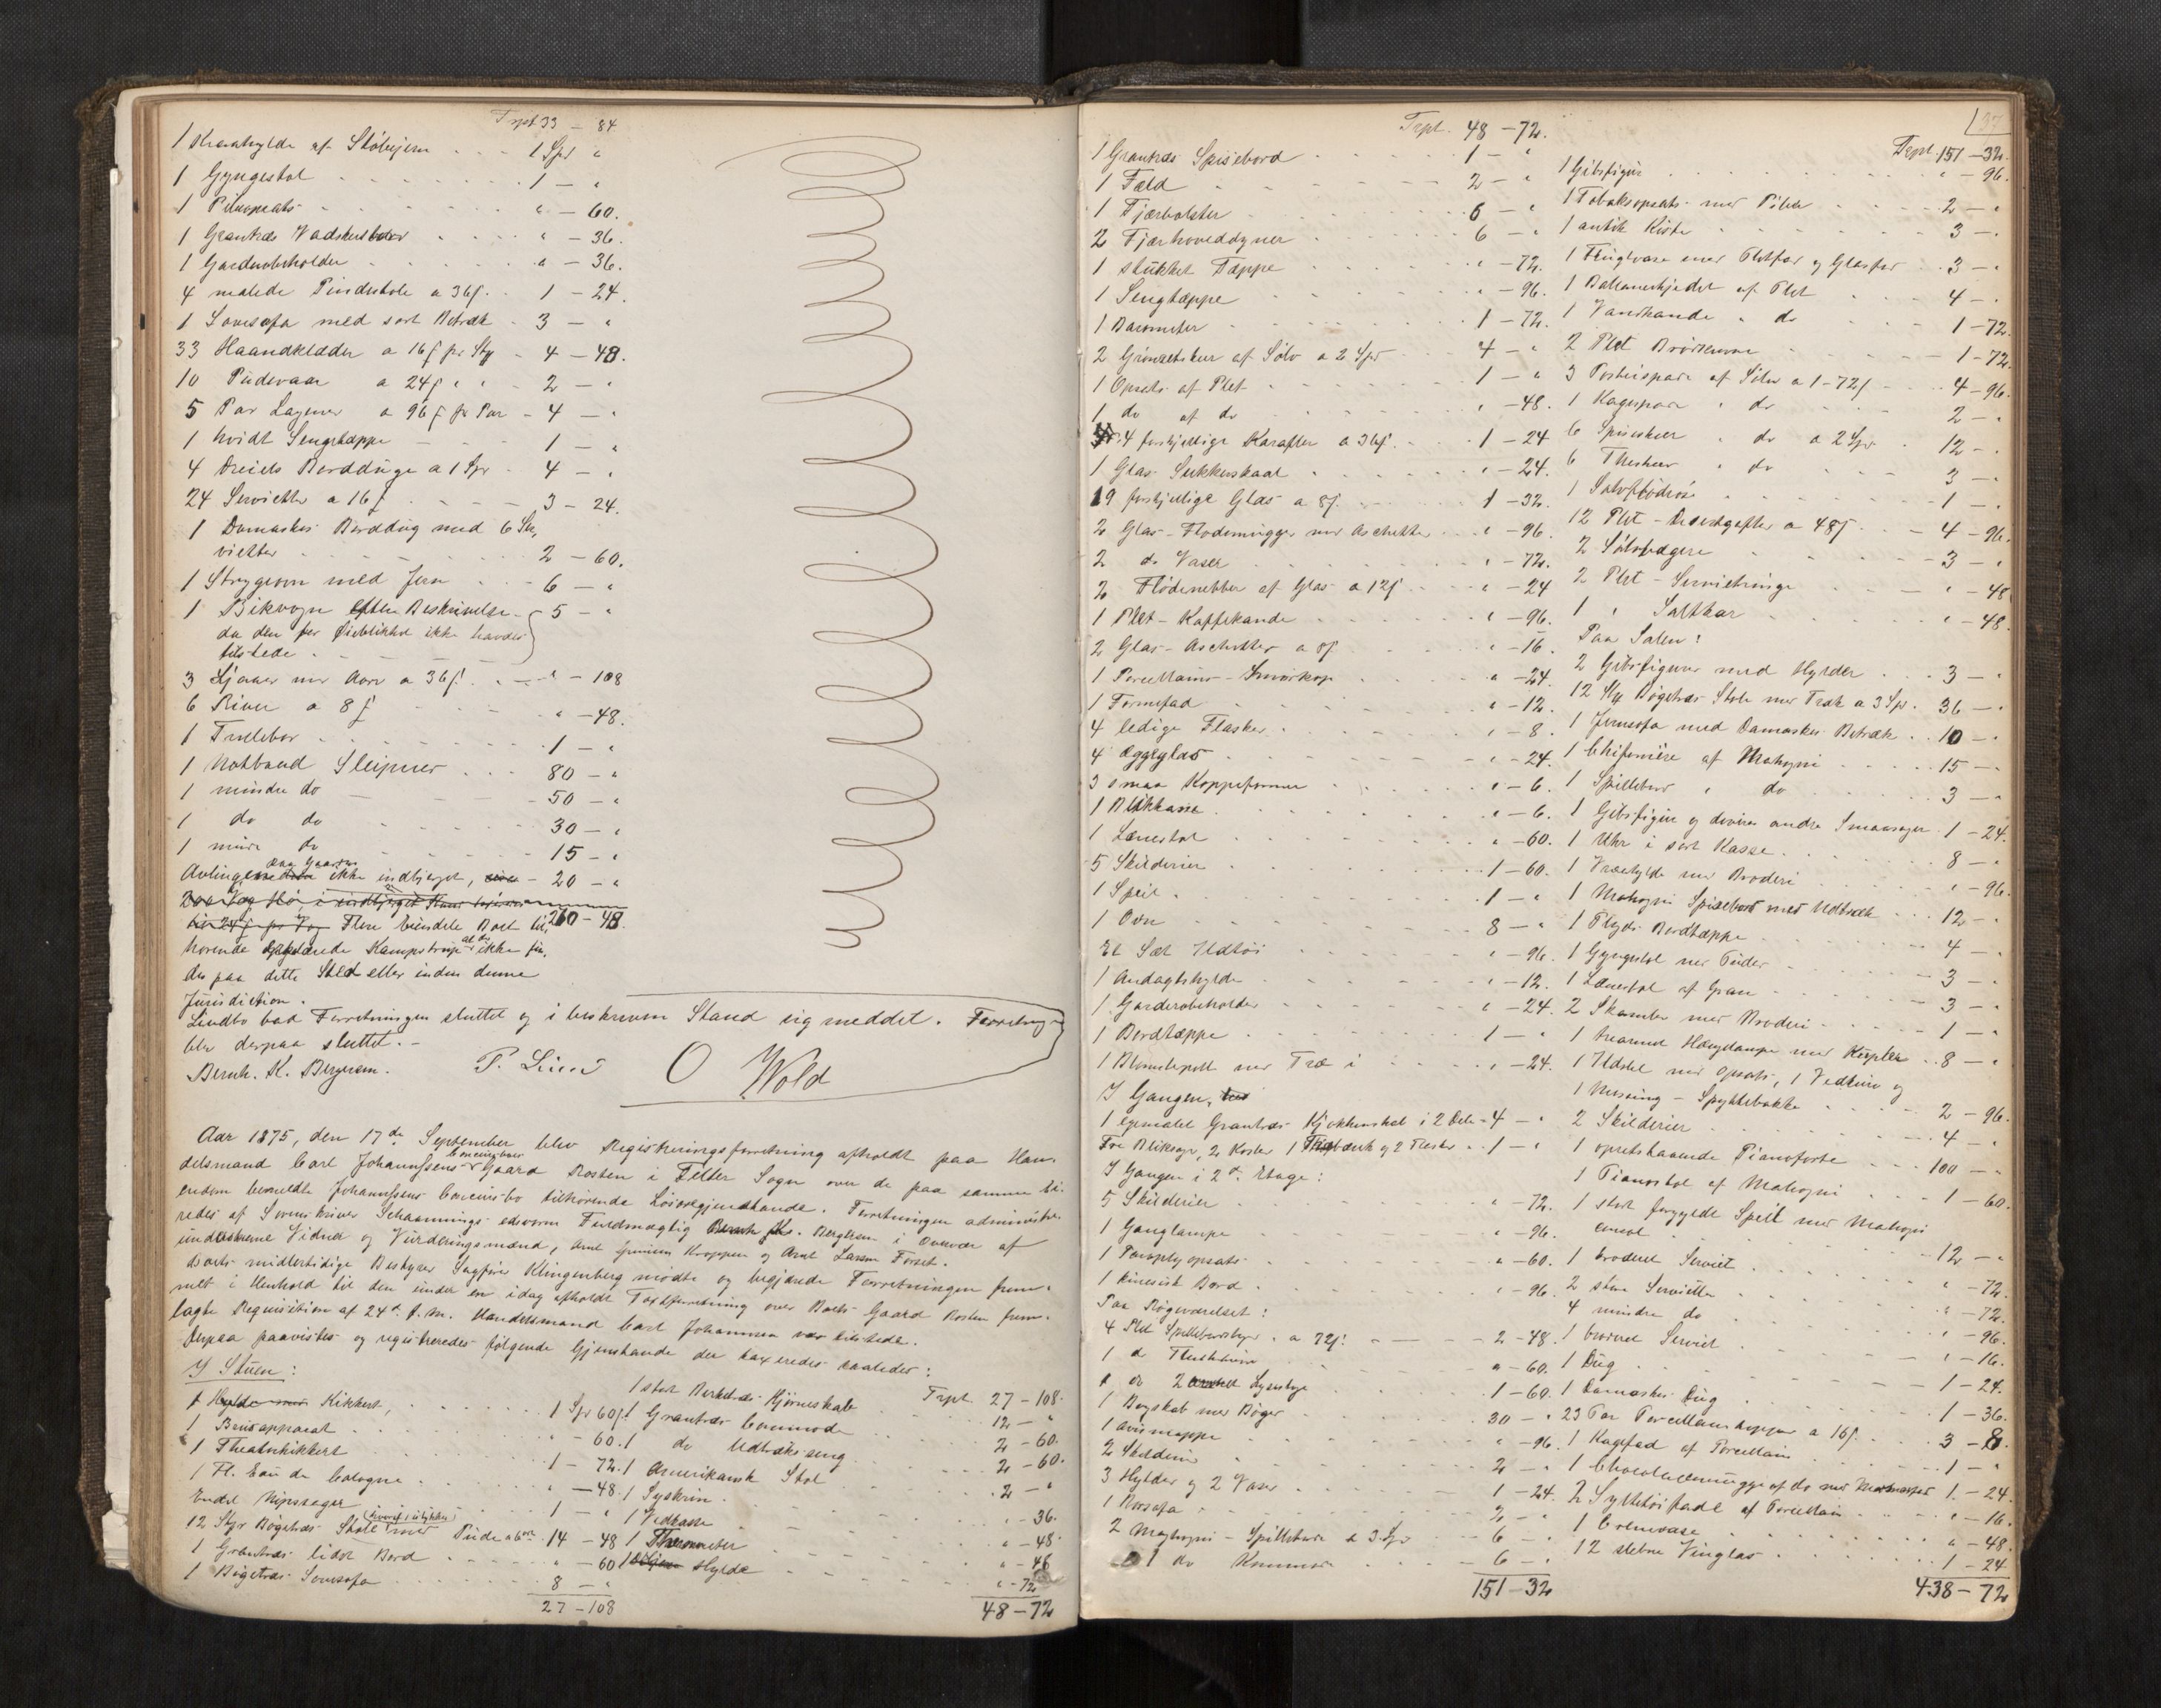 Trpt 33 - 84
1 Kravehylde af Støbejern 1 Spd "
1 Gyngestol 1 - "
1 Pibeopsats " - 60.
1 Grantræs Vadskeskab " - 36.
1 Garderobeholder " - 36.
4 malede Pindestole a 36ß. 1 - 24.
1 Sovesofa med sort Betræk 3 - "
33 Haandklæder a 16ß pr Stk 4 - 48.
10 Pudevaar a 24ß " " 2 - "
5 Par Lagener a 96ß pr Par 4 - "
1 hvidt Sengetæppe 1 - "
4 Dreiels Bordduge a 1 Spd 4 - "
24 Servietter a 16ß 3 - 24.
1 Damaskes Borddug med 6 Ser,
vietter 2 - 60.
1 Strygeovn med Jern 6 - "
1 Birkvogn efter Beskrivelse 5 - "
da den for Øieblikket ikke havdes
tilstede.
3 Ljaaer med Aarv a 36ß. " - 108
6 River a 8ß " - 48.
1 Trillebør 1 - "
1 Notbaad Sleipner 80 - "
1 mindre do 50 - "
1 do do 30 - "
1 mindre do 15 - "
Avlingen paa Gaarden ikke indbjerget, 20 - "
Flere biendele Boet til, 260 - 48.
hørende erklærede Kampstrup at de ikke fin,
des paa dette Sted eller inden denne
Jurisdiction.
Lindbo bad Forretningen sluttet og i beskreven Stand sig meddelt. Forretningen
blev derpaa sluttet.-
Bernh. K. Bergersen. P. Lund O Wold
Aar 1875, den 17de September blev Registreringsforretning afholdt paa Han,
delsmand Carl Johannssens Concursboes Gaard Rosten i Tiller Sogn over de paa samme Ei,
endom bemeldte Johannssens Concursbo tilhørende Løsøregjenstande. Forretningen administre,
redes af Sorenskriver Schaannings edsvorne Fuldmægtig Bernh. K. Bergersen i Overvær af
undertegnede Vidner og Vurderingsmænd, Arnt Kroppen og Arnt Larsen Forset.
Boets midlertidige Bestyrer Sagfører Klingenberg mødte og begjærede Forretningen frem,
met i Henhold til den under en idag afholdt Taxtforretning over Boets Gaard Rosten frem,
lagte Requisition af 24de f. M. Handelsmand Carl Johannsen var tilstede.
Derpaa paavistes og registreredes følgende Gjenstande der taxeredes saaledes:
I Stuen:
1 Kikkert, 1 Spd 60ß
1 Brusapparat " - 60.
1 Theaterkikkert 1 - 72.
1 Fl. Eau de Cologne " - 48.
Endel Nipssager 1 - "
12 Stkr Bøgetræs Stole med Pude 14 - 48
1 Grantræs lidet Bord " - 60
1 Bøgetræs Sovesofa 8 - "
27 - 108
Trpt 27 - 108.
1 stort Birketræs Hjørneskab 12 - "
1 Grantræs Commode 2 - 60.
1 do Udtræksseng 2 - 60.
1 Amerikansk Stol 2 - "
1 Syskrin " - 36.
1 Vedkasse " - 48.
1 Thermometer " - 48
1 Hylde " - 72
48 - 72
Trpt. 48 - 72.
1 Grantræs Spisebord 1 - "
1 Fæld 2 - "
1 Fjærbolster 6 - "
2 Fjærhoveddyner 6 - "
1 stukket Tæppe " - 72.
1 Sengtæppe " - 96.
1 Barometer 1 - 72.
2 Grønsetskeer af Sølv a 2 Spd 4 - "
1 Opsats af Plet 1 - "
1 do af do " - 48.
4 forskjellige Karafler a 36ß. 1 - 24
1 Glas Sukkerskaal " - 24.
19 forskjellige Glas a 8ß. 1 - 32.
2 Glas-Flødemugger med Aschetter " - 96.
2 do Vaser " - 72.
2 Flødenebber af Glas a 12ß " - 24
1 Plet-Kaffekande " - 96.
2 Glas-Aschetter a 8ß " - 16.
1 Porcellains-Smørkop " - 24.
1 Formfad " - 12.
4 ledige Flasker " - 8.
4 Æggeglas " - 24.
3 smaa Koppeformer " - 6.
1 Blikkasse " - 6.
1 Lænestol " - 60.
5 Skilderier 1 - 60.
1 Speil 1 - "
1 Ovn 8 - "
Et Sæt Ildtøi " - 96.
1 Andagtshylde " - 12.
1 Garderobeholder " - 24.
1 Bordtæppe 1 - "
1 Blomsterpott med Træ i " - 24.
I Gangen,
1 egemalet Grantræs Kjøkkenskab i 2 Dele 4 - "
Tre Bliksager, 2 Koster 1 Træbænk og 2 Flasker 1 - "
I Gangen i 2d Etage:
5 Skilderier " - 72.
1 Ganglampe " - 96.
1 Paraplyopsats " - 60.
1 kinesisk Bord " - 96.
Paa Røgeværelset:
4 Plet Spillebordslyse a 72ß. 2 - 48.
1 do " - 60.
1 do Lysestage 1 - 60.
1 Bogskab med Bøger 30 - "
1 Avismappe " - 96.
2 Skilderier 2 - "
3 Hylder og 2 Vaser 1 - 24.
1 Rørsofa 2 - "
2 Mahogni-Spilleborde a 3 Spd 6 - "
1 do Kommode 6 - "
151 - 32
Trpt 151 - 32.
1 Gibsfigur " - 96.
1 Tobaksopsats med Piber 2 - "
1 antik Kiste 3 - "
1 Frugtvase med Pletfod og Glasfad 3 - "
1 Ballancekjedel af Plet 4 - "
1 Vandkande " do 1 - 72.
2 Plet Brødkurve 1 - 72.
3 Posteispader af Sølv a 1-72ß 4 - 96.
1 Kagespade " do 2 - "
6 Spiseskeer " do a 2 Spd 12 - "
6 Theskeer " do 3 - "
1 Sølvflødeøse 1 - "
12 Plet-Desertgafler a 48ß 4 - 96.
2 Sølvbægere 3 - "
2 Plet-Servietringe " - 48
1 " Saltkar " - 48.
Paa Salen:
2 Gibsfigurer med Hylder 3 - "
12 Stk Bøgetræs Stole med Træk a 3 Spd. 36 - "
1 Jernsofa med Damaskes Betræk 10 - "
1 Chifeniere af Mahogni 15 - "
1 Spillebord " do 3 - "
1 Gibsfigur og diverse andre Smaasager 1 - 24.
1 Uhr i sort Kasse 8 - "
1 Træhylde med Broderi " - 96.
1 Mahogni Spisebord med Udtræk 12 - "
1 Plyds Bordtæppe 4 - "
1 Gyngestol med Puder 3 - "
1 Lænestol af Gran 3 - "
2 Skamler med Broderi 1 - "
1 trearmet Hængelampe med Kupler 8 - "
1 Ildsted med Opsats, 1 Vedkurv og
1 Messing-Spyttebakke 2 - 96.
2 Skilderier 4 - "
1 opretstaaende Pianoforte 100 - "
1 Pianostol af Mahogni 1 - 60.
1 stort forgyldt Speil med Mahogni
Consol 12 - "
1 broderet Serviet " - 72.
2 store Servietter " - 72.
4 mindre do " - 96.
1 broderet Serviet " - 16.
1 Dug 1 - 24.
1 Damaskes Dug 1 - 36.
23 Par Porcellainskopper a 16ß. 3 - 8.
1 Kagefad af Porcellain 1 - "
1 Chocolademugge af do 1 - 24.
2 Syltetøifade af Porcellain " - 16.
1 Cremevase " - 48.
12 slebne Vinglas 1 - 24
438 - 72